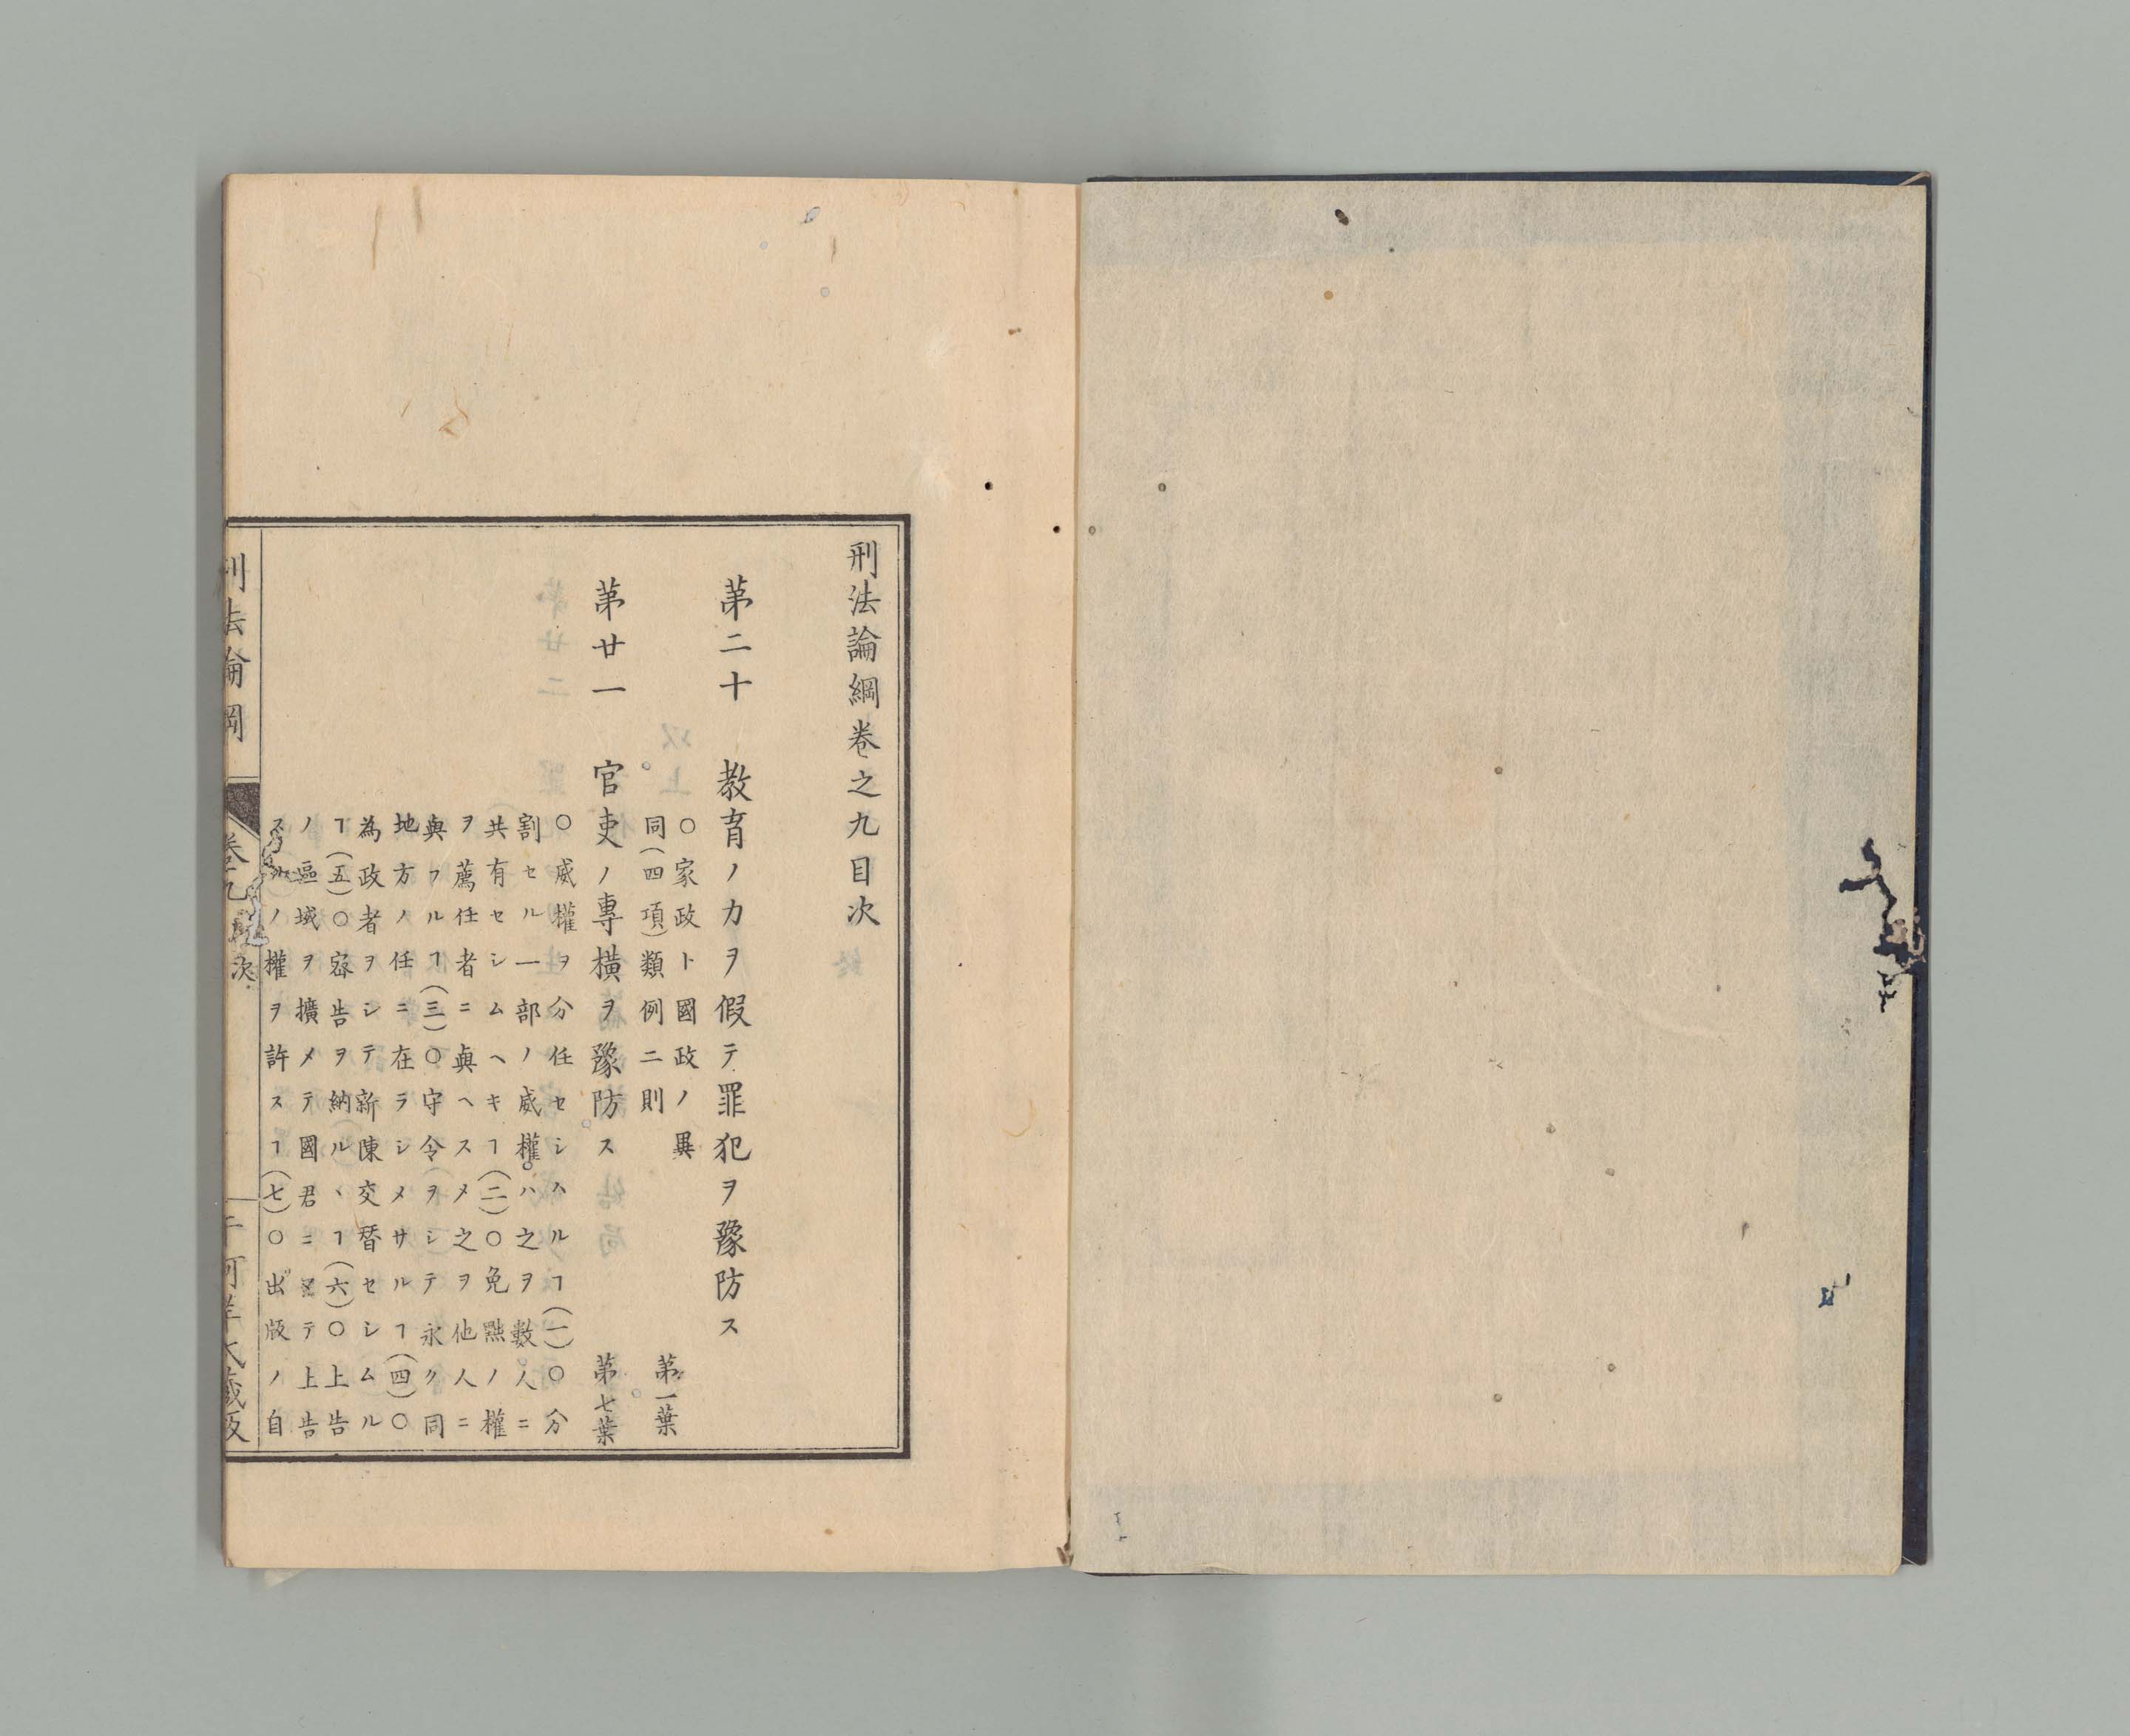 刑法論綱卷之九目次
苐二十　教育ノカヲ假テ罪犯ヲ豫防ス
○家政ト國政ノ異
同(四項)類例二則
苐一葉
苐廿一　官吏ノ專横ヲ豫防ス
苐七葉
○威權ヲ分任セシムルヿ(一)○分
割セル一部ノ威權ハ之ヲ數人ニ
共有セシムヘキヿ(二)○免黜ノ權
ヲ薦任者ニ與ヘスメ之ヲ他人ニ
與フルヿ(三)○守令ヲシテ永ク同
地方ノ任ニ在ラシメサルヿ(四)○
為政者ヲシテ新陳交替セシムル
ヿ(五)○密告ヲ納ルヽヿ(六)○上告
ノ區域ヲ擴メテ國君ニ テ上告
ス ノ權ヲ許スヿ(七)○出版ノ自
刑法論綱　卷九　目次　 藏版